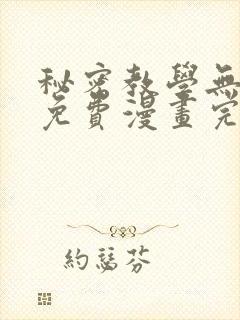 秘密教學無
免費漫畫完
約瑟芬